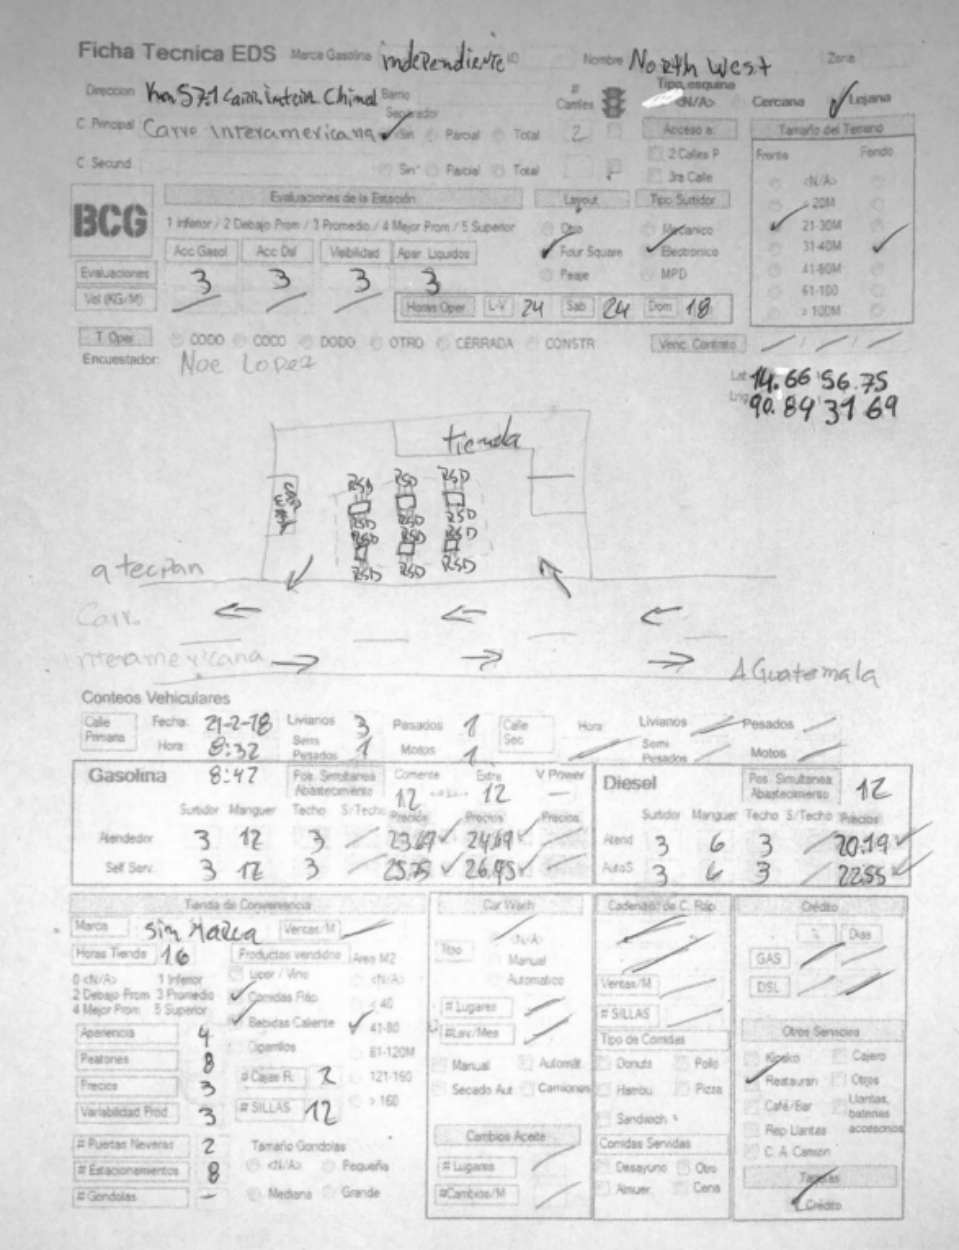 Ficha Tecnica EDS Marca Gasolina independiente ID Nombre North West Zona
Direccion Km 57.1 Carr. interam Chimal Barrio # Carriles Tipo esquina <N/A> Cercana Lejana
Separador
C Principal Carro Interamericana Sin Parcial Total 2 Acceso a: Tamaño del Terreno
C Secund Sin Parcial Total 2 Calles P Frente Fondo
3ra Calle <N/A>
BCG Evaluaciones de la Estación Layout Tipo Surtidor
1 Inferior / 2 Debajo Prom / 3 Promedio / 4 Mejor Prom / 5 Superior Otro Mecanico 20M
Acc Gasol Acc Dsl Visibilidad Apar. Liquidos Four Square Electronico 21-30M
31-40M
Evaluaciones 3 3 3 3 Peaje MPD 41-60M
Vol (KG/M) Horas Oper L-V 24 Sab 24 Dom 18 61-100
> 100M
T. Oper CODO COCO DODO OTRO CERRADA CONSTR Venc. Contrato
Encuestador: Noe Lopez
Lat 14.66 56.75
Lng 90.84 31 69
tienda
Car Wash
RSD RSD RSD
RSD RSD RSD
RSD RSD RSD
RSD RSD RSD
a tecpan
Carr.
Interamericana
A Guatemala
Conteos Vehiculares
Calle Primaria Fecha: 21-2-18 Livianos 3 Pesados 1 Calle Sec Hora Livianos Pesados
Hora: 8:32 Semi Pesados 1 Motos 1 Semi Pesados Motos
Gasolina 8:47 Pos. Simultanea Abastecimiento Corriente 12 Extra 12 V Power — Diesel Pos. Simultanea Abastecimiento 12
Surtidor Manguer Techo S/Techo Precios Precios Precios Surtidor Manguer Techo S/Techo Precios
Atendedor 3 12 3 23.69 24.69 Atend 3 6 3 20.19
Self Serv. 3 12 3 25.75 26.95 AutoS 3 6 3 22.55
Tienda de Conveniencia Car Wash Cadenas de C. Rap Crédito
Marca Sin Marca Ventas/M <N/A> % Dias
Horas Tienda 16 Productos vendidos Area M2 Tipo Manual GAS
0 <N/A> 1 Inferior Licor / Vino <N/A> Automatico Ventas/M DSL
2 Debajo Prom 3 Promedio Comidas Ráp < 40 # Lugares
4 Mejor Prom 5 Superior # SILLAS
Bebidas Caliente 41-80 #Lav/Mes Otros Servicios
Apariencia 4 Cigarrillos 81-120M Tipo de Comidas
Peatones 8 Manual Automát. Donuts Pollo Kiosko Cajero
Precios 3 # Cajas R. 2 121-160 Secado Aut Camiones Hambu Pizza Restauran Otros
Variabilidad Prod 3 # SILLAS 12 > 160 Sandwich Café/Bar Llantas, baterias accesorios
# Puertas Neveras 2 Tamaño Gondolas Cambios Aceite Comidas Servidas Rep Llantas
# Estacionamientos 8 <N/A> Pequeña # Lugares Desayuno Otro C. A. Camion
# Gondolas – Mediana Grande #Cambios/M Almuer Cena Tarjetas
Crédito